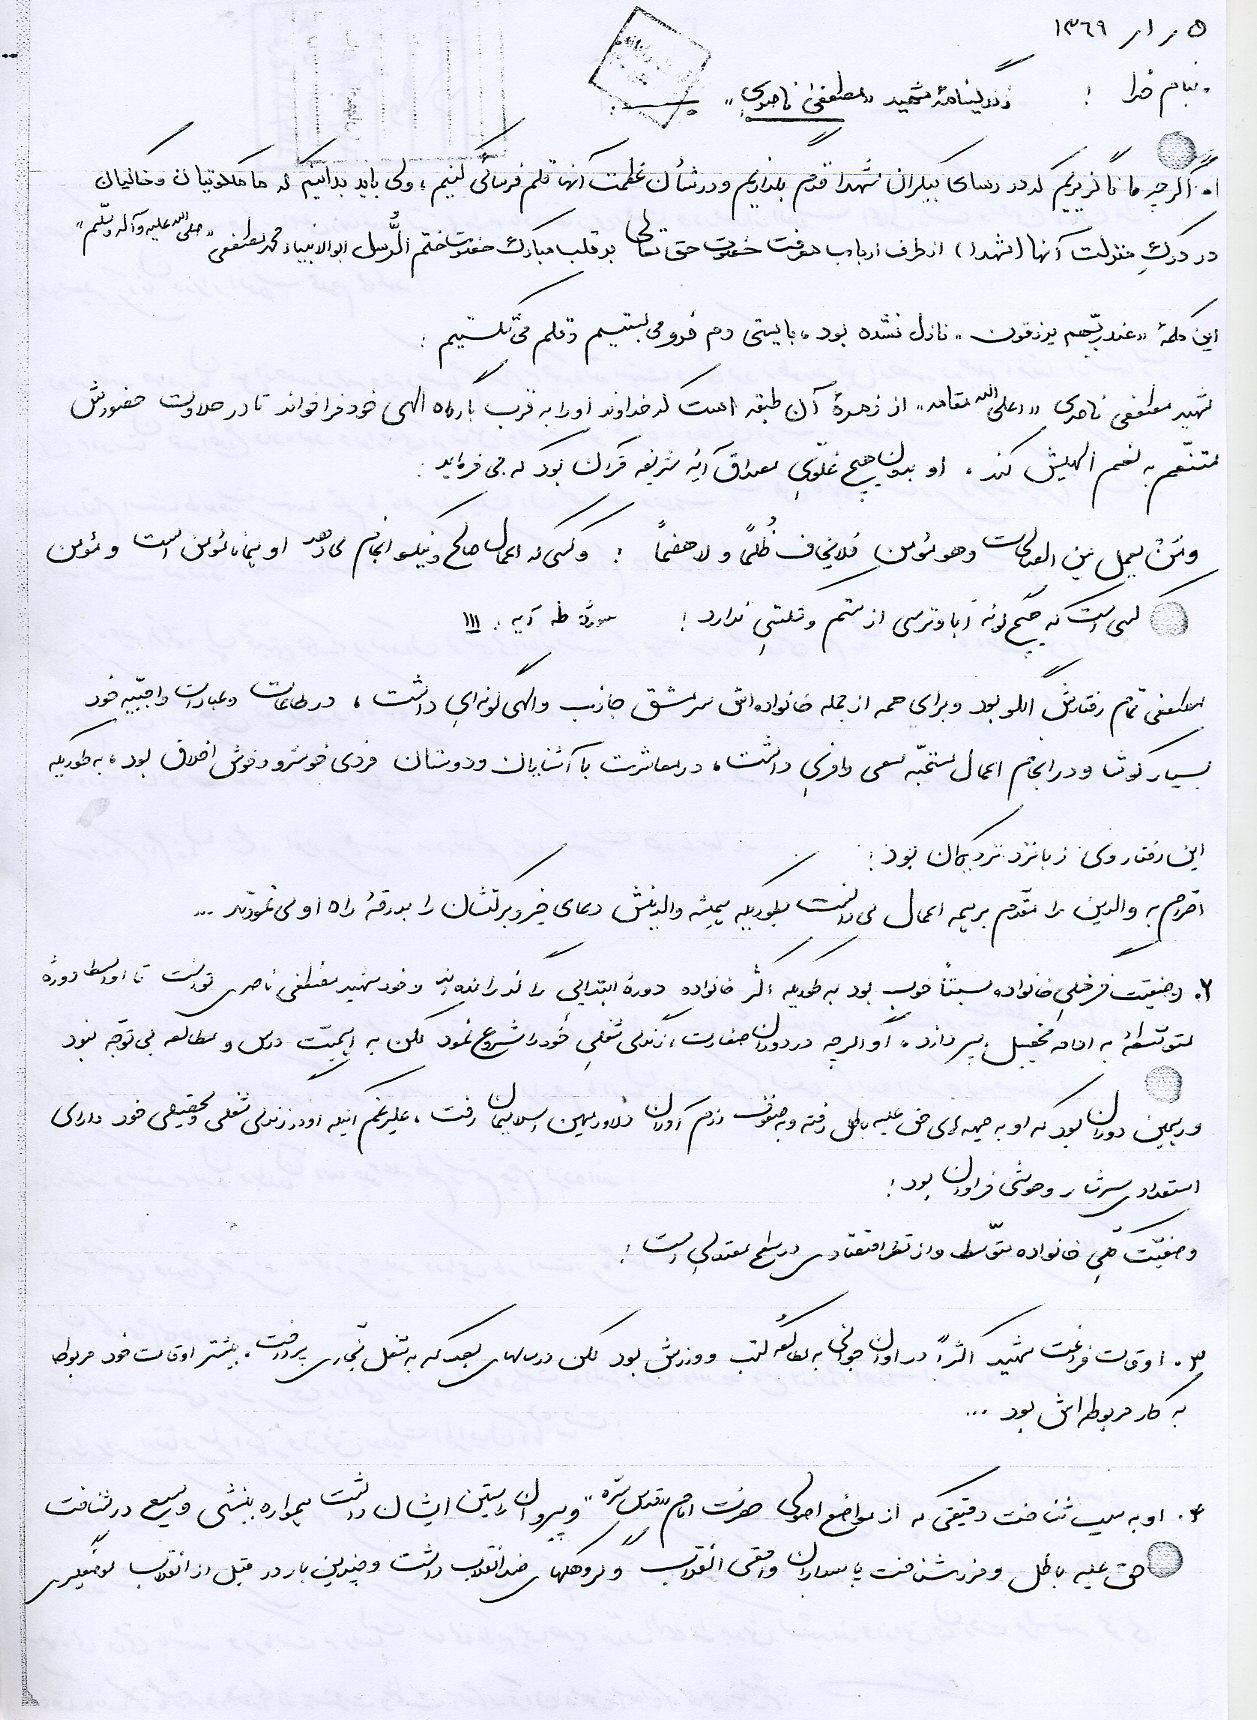 ۵ ر ار ۱۳۶۹
بنام خدا !
زندگینامهٔ شهید «مصطفی ناصری»
۱. اگر چه ما ناگزیریم که در رسای بیکران شهدا قدم بگذاریم و در شأن عظمت آنها قلم فرسائی کنیم ؛ ولی باید بدانیم که ما ملکوتیان و خاکیان
در درکِ منزلت آنها (شهدا) از طرف ارباب معرفت حضرت حق تعالی بر قلب مبارک حضرت ختم الرُّسل ابوالانبیاء محمد مصطفی «صلی الله علیه و آله و سلّم»
این کلمهٔ «عند ربّهم یرزقون» نازل نشده بود، بایستی دم فرو می بستیم و قلم می شکستیم :
شهید مصطفی ناصری «اعلی الله مقامه» از زمرهٔ آن طبقه است که خداوند او را به قرب بارگاه الهی خود فرا خواند تا در حلاوت حضورش
متنّعم به نعم الهیش کند . او بدون هیچ غلّوی مصداق آیه شریفه قرآن بود که می فرماید :
و مَنْ یعمل مِن الصالحات و هو مؤمن فلا یخاف ظُلماً و لا هضماً : و کسی که اعمال صالح و نیکو انجام می دهد او همانا مؤمن است و مؤمن
کسی است که هیچ گونه اِبا و ترسی از ستم و قلتی ندارد ! سورهٔ طه آیه : ۱۱۱
مصطفی تمام رفتارش الگو بود و برای همه از جمله خانواده اش سرمشق جاذب و الهی گونه ای داشت ، در طاعات و عبادات واجبیه خود
بسیار کوشا و در انجام اعمال مستحبّه سعی وافری داشت ، در معاشرت با آشنایان و دوستان فردی خوشرو و خوش اخلاق بود ، به طوریکه
این رفتار وی زبانزد نزدیکان بود :
احترام به والدین را مقدّم بر همه اعمال می دانست بطوریکه همیشه والدینش دعای خیر و برکتشان را بدرقهٔ راه او می نمودند ...
۲. وضعیّت فرهنگی خانواده نسبتاً خوب بود به طوریکه اکثر خانواده دورهٔ ابتدایی را گذرانده اند و خود شهید مصطفی ناصری توانست تا اواسط دورهٔ
متوسّطهٔ به ادامه تحصیل بپردازد . او اگر چه در دوران صغارت ، زندگی شغلی خود را شروع نمود لکن به اهمیّت درس و مطالعه بی توجّه نبود
و همین دوران بود که او به جبهه های حق علیه باطل رفته و به صفوف رزم آوران دلاور میهن اسلامیمان رفت ، علیرغم اینکه او در زندگی شغلی و تحصیلی خود دارای
استعدادی سرشار و هوشی فراوان بود :
وضعیّت کلّی خانواده متوّسط و از نظر اقتصادی در سطح معتدلی است :
۳. اوقات فراغت شهید اکثراً در اوان جوانی به مطالعهٔ کتب و ورزش بود لکن در سالهای بعد که به شغل نجاری پرداخت . بیشتر اوقات خود مربوط
به کار مربوطه اش بود ...
۴. او به سبب شناخت دقیقی که از مواضع اصولی حضرت امام «قدس سرّه» و پیروان راستین ایشان داشت همواره بینشی وسیع در شناخت
حق علیه باطل و مرز شناخت پاسداران واقعی انقلاب و گروهکهای ضد انقلاب داشت و چندین بار در قبل از انقلاب موضعگیری